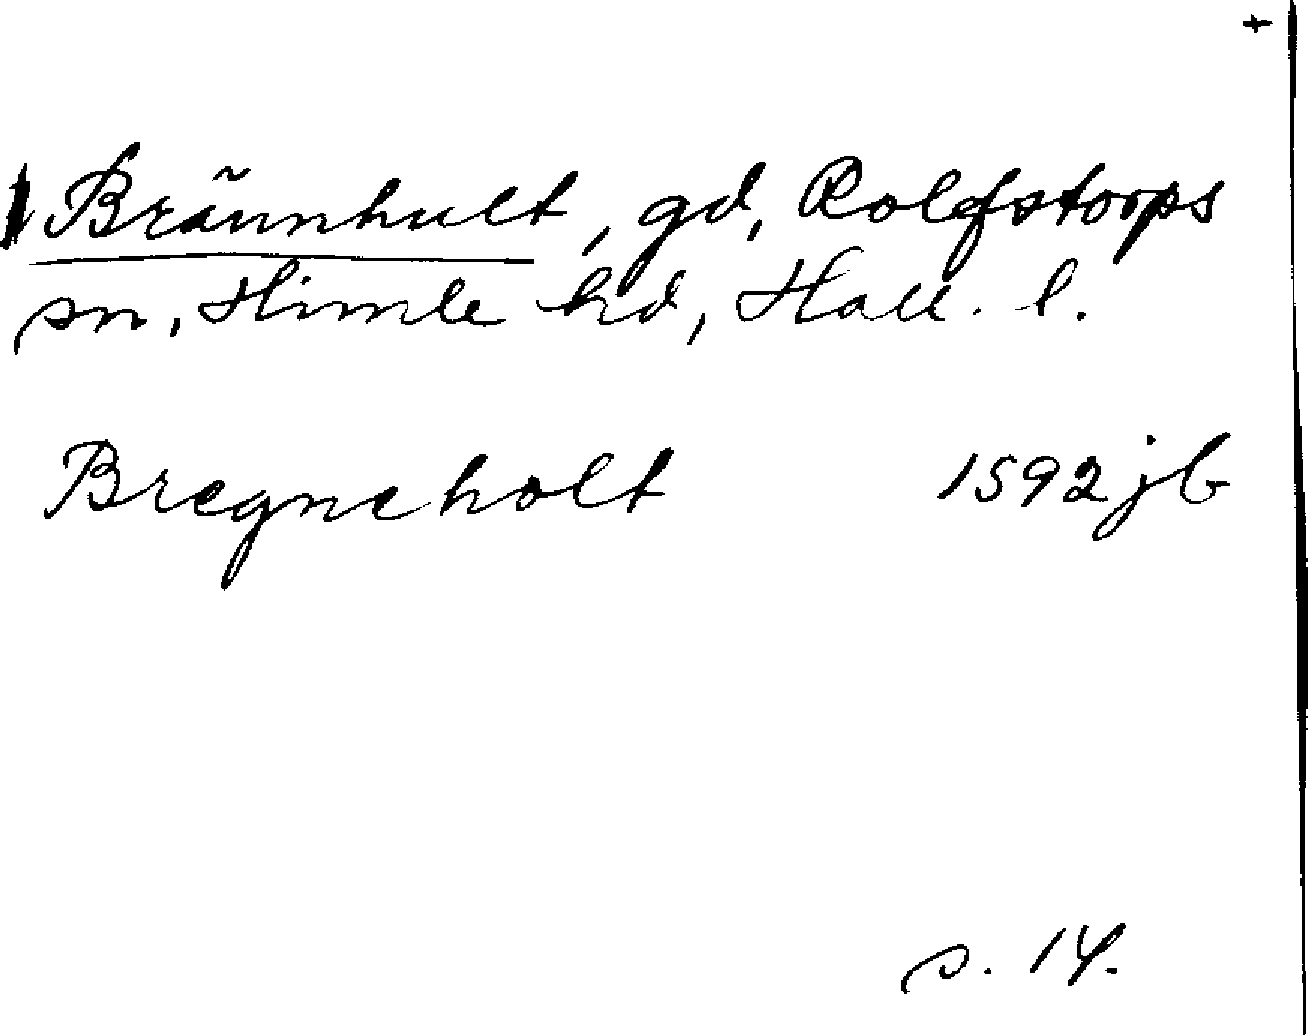 +
Brännhult, gd, Rolfstorps
sn, Himle hd, Hall. l.
Bregneholt 1592 jb
s. 14.